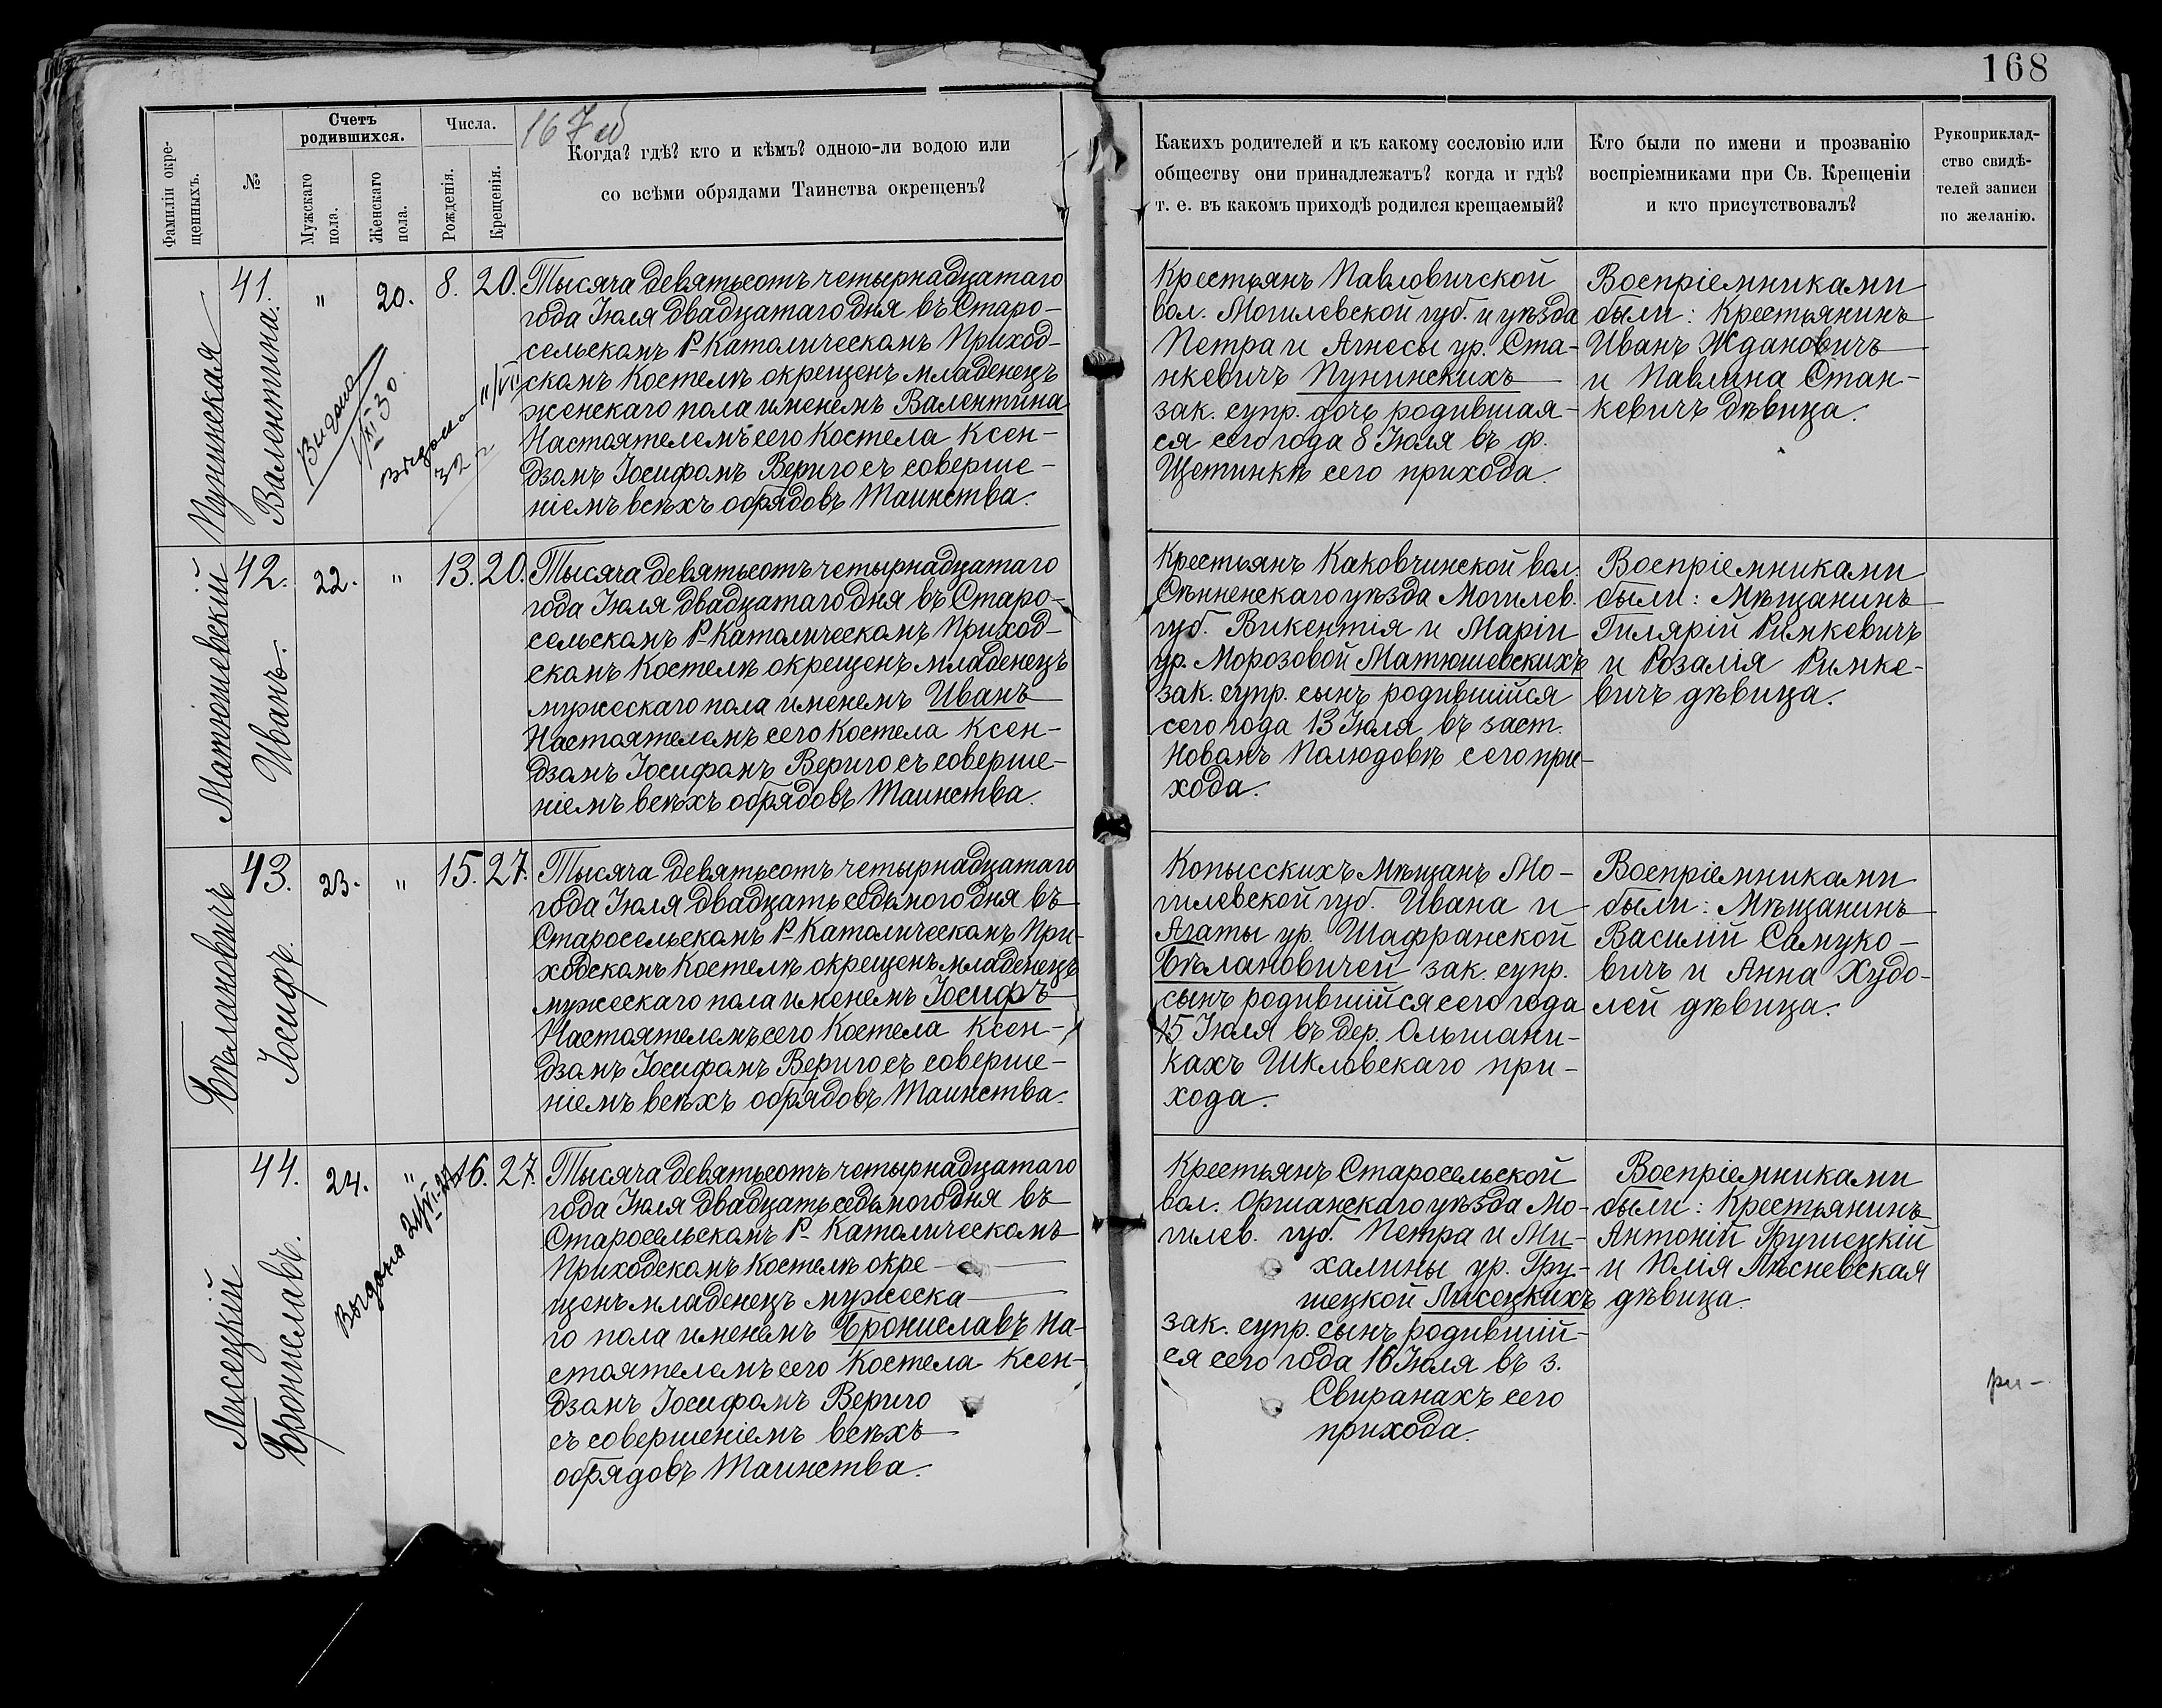 168
167 об
Фамиліи окре-
щенныхъ.
№
Счетъ
родившихся.
Мужскаго
пола.
Женскаго
пола.
Числа.
Рожденія.
Крещенія.
Когда? гдѣ? кто и кѣмъ? одною-ли водою или
со всѣми обрядами Таинства окрещенъ?
Какихъ родителей и къ какому сословію или
обществу они принадлежатъ? когда и гдѣ?
т. е. въ какомъ приходѣ родился крещаемый?
Кто были по имени и прозванію
воспріемниками при Св. Крещеніи
и кто присутствовалъ?
Рукоприклад-
ство свидѣ-
телей записи
по желанію.
Пунинская
Валентина.
41.
"
20.
8.
20.
Выдана
XI 30
выдано
32 г
Тысяча девятьсотъ четырнадцатаго
года Іюля двадцатаго дня въ Старо-
сельскомъ Р-Католическомъ Приход-
скомъ Костелѣ окрещенъ младенецъ
женскаго пола именемъ Валентина
Настоятелемъ сего Костела Ксен-
дзомъ Іосифомъ Вериго съ соверше-
ніемъ всѣхъ обрядовъ Таинства.
Крестьянъ Павловичской
вол. Могилевской губ. и уѣзда
Петра и Агнесы ур. Ста-
нкевичъ Пунинскихъ
зак. супр. дочь родившая-
ся сего года 8 Іюля въ ф.
Щетинкѣ сего прихода.
Воспріемниками
были: Крестьянинъ
Иванъ Ждановичъ
и Павлина Стан-
кевичъ дѣвица.
Матюшевскій
Иванъ.
42.
22.
"
13.
20.
Тысяча девятьсотъ четырнадцатаго
года Іюля двадцатаго дня въ Старо-
сельскомъ Р-Католическомъ Приход-
скомъ Костелѣ окрещенъ младенецъ
мужескаго пола именемъ Иванъ
Настоятелемъ сего Костела Ксен-
дзомъ Іосифомъ Вериго съ соверше-
ніемъ всѣхъ обрядовъ Таинства.
Крестьянъ Каковчинской вол.
Сѣнненскаго уѣзда Могилев.
губ. Викентія и Маріи
ур. Морозовой Матюшевскихъ
зак. супр. сынъ родившійся
сего года 13 Іюля въ заст.
Новомъ Полюдовѣ сего при-
хода.
Воспріемниками
были: Мѣщанинъ
Гилярій Римкевичъ
и Розалія Римке-
вичъ дѣвица.
Бѣлановичъ
Іосифъ.
43.
23.
"
15.
27.
Тысяча девятьсотъ четырнадцатаго
года Іюля двадцать седьмого дня въ
Старосельскомъ Р-Католическомъ При-
ходскомъ Костелѣ окрещенъ младенецъ
мужескаго пола именемъ Іосифъ
Настоятелемъ сего Костела Ксен-
дзомъ Іосифомъ Вериго съ соверше-
ніемъ всѣхъ обрядовъ Таинства.
Копысскихъ Мѣщанъ Мо-
гилевской губ. Ивана и
Агаты ур. Шафранской
Бѣлановичей зак. супр.
сынъ родившійся сего года
15 Іюля въ дер. Ольшани-
кахъ Шкловскаго при-
хода.
Воспріемниками
были: Мѣщанинъ
Василій Самуко-
вичъ и Анна Худо-
лей дѣвица.
Лисецкій
Брониславъ.
44.
24.
"
16.
27.
Выдана
Тысяча девятьсотъ четырнадцатаго
года Іюля двадцать седьмого дня въ
Старосельскомъ Р-Католическомъ
Приходскомъ Костелѣ окре-
щенъ младенецъ мужеска-
го пола именемъ Брониславъ На-
стоятелемъ сего Костела Ксен-
дзомъ Іосифомъ Вериго
съ совершеніемъ всѣхъ
обрядовъ Таинства.
Крестьянъ Старосельской
вол. Оршанскаго уѣзда Мо-
гилев. губ. Петра и Ми-
халины ур. Гру-
шецкой Лисецкихъ
зак. супр. сынъ родившій-
ся сего года 16 Іюля въ з.
Свиранахъ сего
прихода.
Воспріемниками
были: Крестьянинъ
Антоній Грушецкій
и Юлія Лѣсневская
дѣвица.